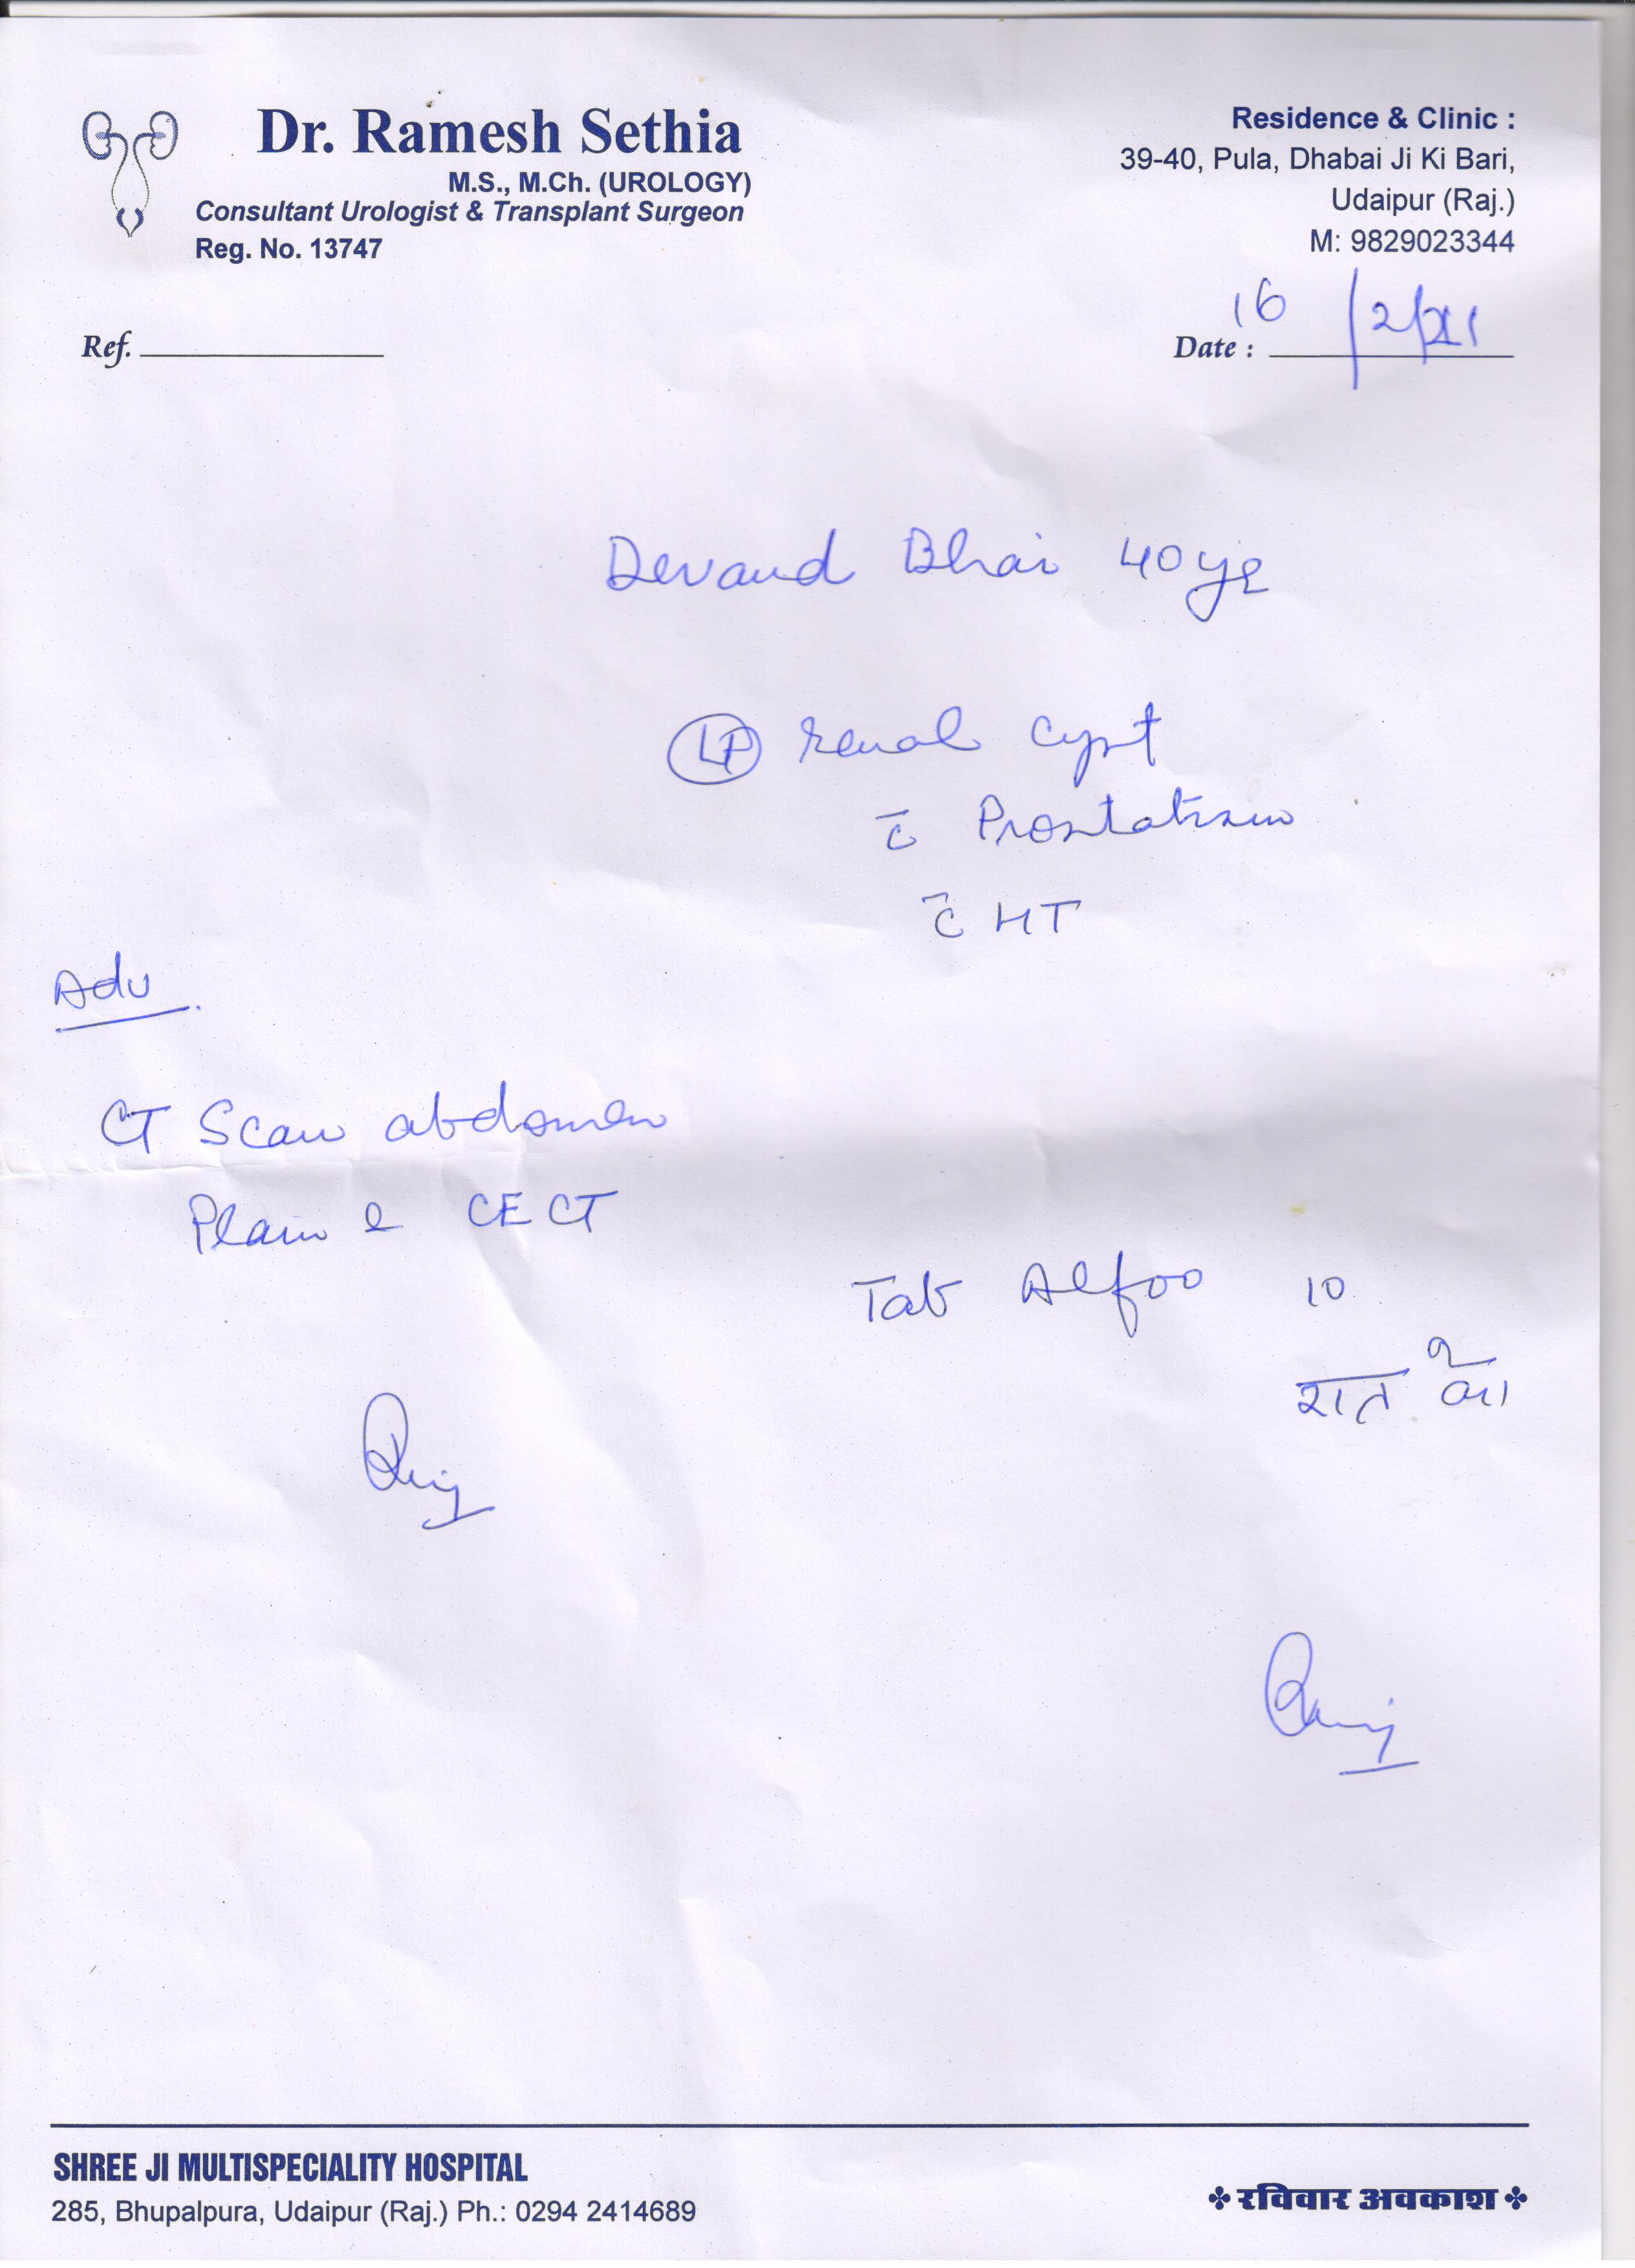 Dr. Ramesh Sethia
M.S., M.Ch. (UROLOGY)
Consultant Urologist & Transplant Surgeon
Reg. No. 13747
Residence & Clinic :
39-40, Pula, Dhabai Ji Ki Bari,
Udaipur (Raj.)
M: 9829023344
Ref.
Date : 16/2/21
Devaud Bhai 40 yr
renal cyst
c̄ Prostatism
c̄ HT
Adv
CT Scan abdomen
Plain & CECT
Tab Alfoo 10
रात को
SHREE JI MULTISPECIALITY HOSPITAL
285, Bhupalpura, Udaipur (Raj.) Ph.: 0294 2414689
रविवार अवकाश